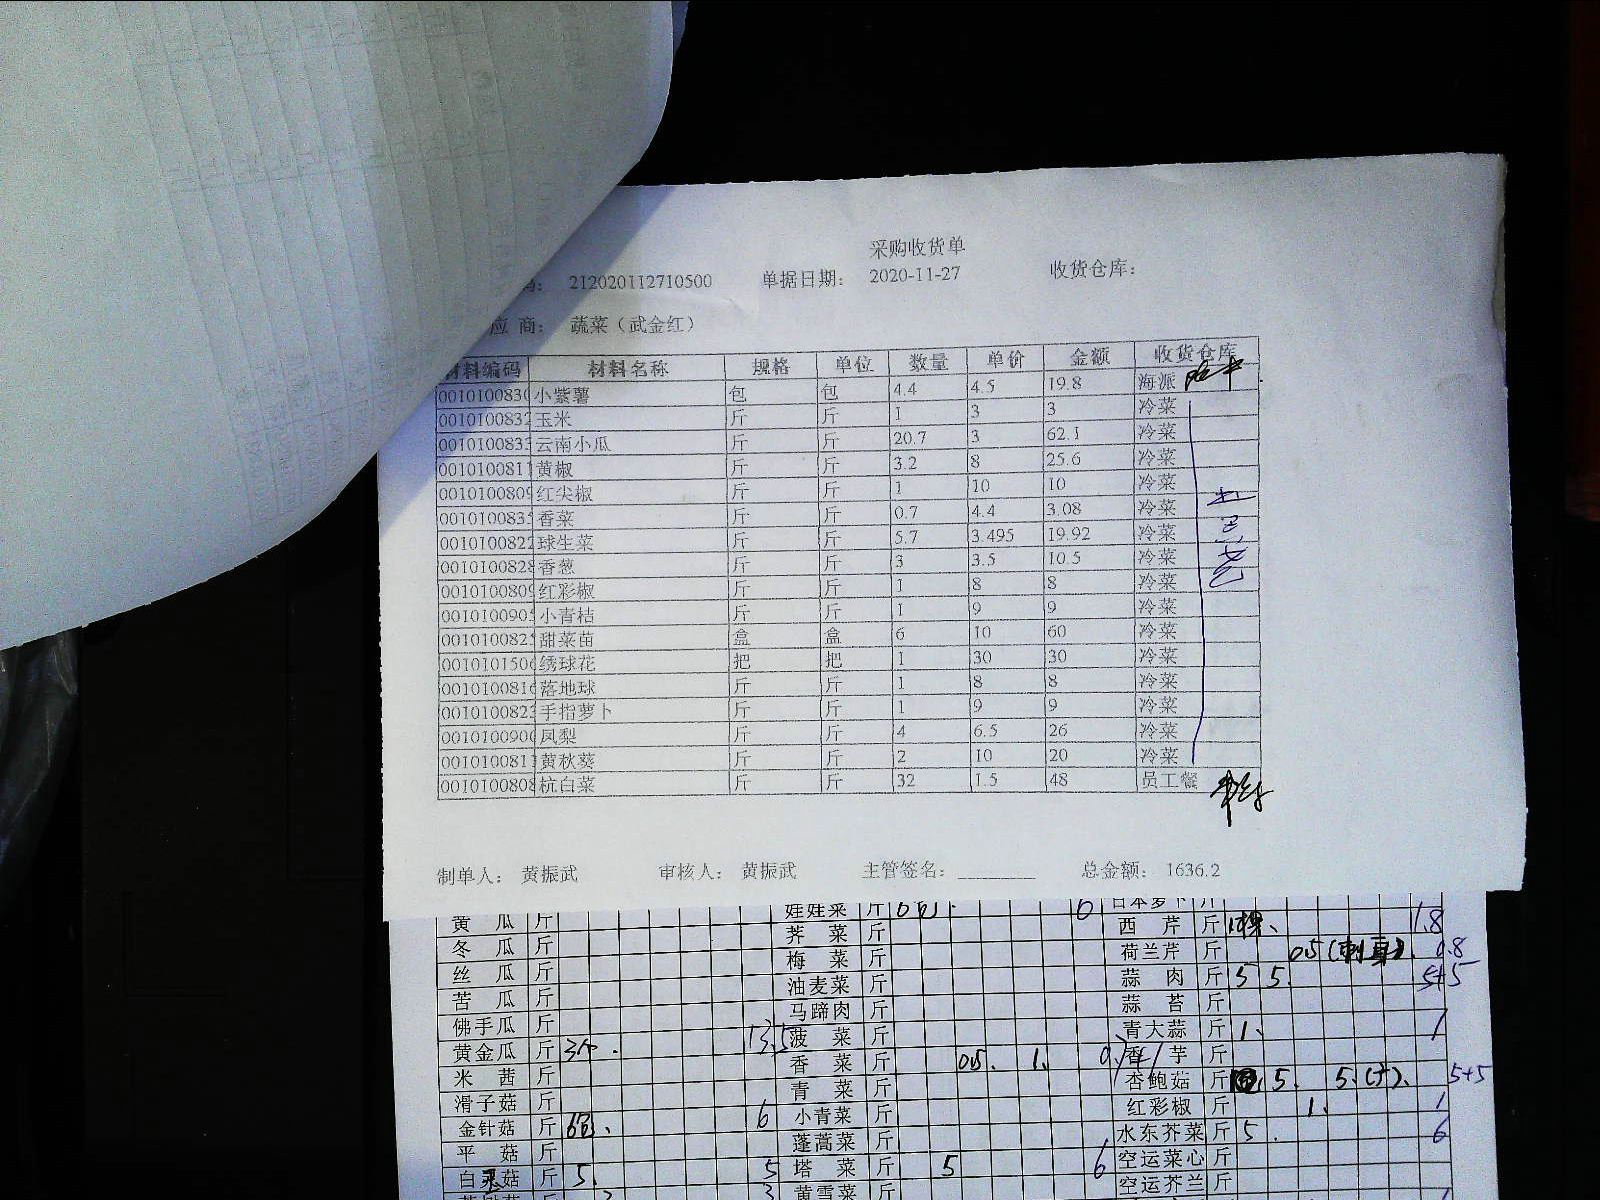 采购收货单
码： 212020112710500 单据日期： 2020-11-27 收货仓库：
应 商： 蔬菜（武金红）
材料编码 材料名称 规格 单位 数量 单价 金额 收货仓库
001010083 小紫薯 包 包 4.4 4.5 19.8 海派
001010083 玉米 斤 斤 1 3 3 冷菜
001010083 云南小瓜 斤 斤 20.7 3 62.1 冷菜
001010081 黄椒 斤 斤 3.2 8 25.6 冷菜
0010100809 红尖椒 斤 斤 1 10 10 冷菜
001010083 香菜 斤 斤 0.7 4.4 3.08 冷菜
0010100822 球生菜 斤 斤 5.7 3.495 19.92 冷菜
0010100828 香葱 斤 斤 3 3.5 10.5 冷菜
0010100809 红彩椒 斤 斤 1 8 8 冷菜
001010090 小青桔 斤 斤 1 9 9 冷菜
001010082 甜菜苗 盒 盒 6 10 60 冷菜
001010150 绣球花 把 把 1 30 30 冷菜
001010081 落地球 斤 斤 1 8 8 冷菜
001010082 手指萝卜 斤 斤 1 9 9 冷菜
001010090 凤梨 斤 斤 4 6.5 26 冷菜
001010081 黄秋葵 斤 斤 2 10 20 冷菜
0010100808 杭白菜 斤 斤 32 1.5 48 员工餐
制单人： 黄振武 审核人： 黄振武 主管签名： 总金额： 1636.2
黄 瓜 斤 娃娃菜 斤 日本萝卜 斤
冬 瓜 斤 荠 菜 斤 西 芹 斤 1.8
丝 瓜 斤 梅 菜 斤 荷兰芹 斤 0.5 0.8
苦 瓜 斤 油麦菜 斤 蒜 肉 斤 5 5 5+5
佛手瓜 斤 马蹄肉 斤 蒜 苔 斤
黄金瓜 斤 3个. 13.5 菠 菜 斤 青大蒜 斤 1 1
米 茜 斤 香 菜 斤 0.5 1 香 芋 斤
滑子菇 斤 青 菜 斤 杏鲍菇 斤 5 5 5+5
金针菇 斤 6包 6 小青菜 斤 红彩椒 斤 1 1
平 菇 斤 蓬蒿菜 斤 水东芥菜 斤 5 6
白灵菇 斤 5 5 塔 菜 斤 5 6 空运菜心 斤
黄雪菜 斤 空运芥兰 斤